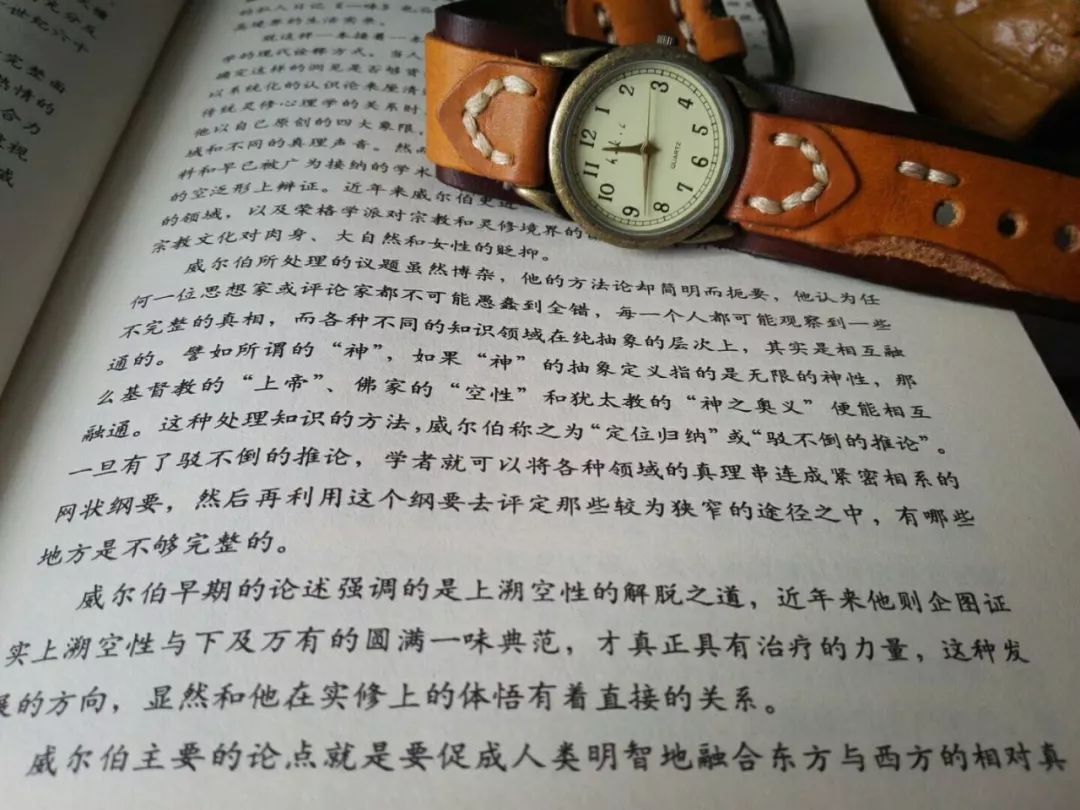 世纪六十
完整面
热情的
合力
视
的私人日记《一味》
高境界的生活实录。
就这样一本接着一本
学的现代诠释方式。当人
确定这样的洞见是否够
以系统化的认识论来厘清
传统灵修心理学的关系时
他以自己原创的四大象限，
域和不同的真理声音。然
料和早已被广为接纳的学术
的空泛形上辩证。近年来威尔伯更进
的领域，以及荣格学派对宗教和灵修境界的
宗教文化对肉身、大自然和女性的贬抑。
威尔伯所处理的议题虽然博杂，他的方法论却简明而扼要，他认为任
何一位思想家或评论家都不可能愚蠢到全错，每一个人都可能观察到一些
不完整的真相，而各种不同的知识领域在纯抽象的层次上，其实是相互融
通的。譬如所谓的“神”，如果“神”的抽象定义指的是无限的神性，那
么基督教的“上帝”、佛家的“空性”和犹太教的“神之奥义”便能相互
融通。这种处理知识的方法，威尔伯称之为“定位归纳”或“驳不倒的推论”。
一旦有了驳不倒的推论，学者就可以将各种领域的真理串连成紧密相系的
网状纲要，然后再利用这个纲要去评定那些较为狭窄的途径之中，有哪些
地方是不够完整的。
威尔伯早期的论述强调的是上溯空性的解脱之道，近年来他则企图证
实上溯空性与下及万有的圆满一味典范，才真正具有治疗的力量，这种发
展的方向，显然和他在实修上的体悟有着直接的关系。
威尔伯主要的论点就是要促成人类明智地融合东方与西方的相对真
12
1
2
3
4
5
6
7
8
9
10
11
QUARTZ